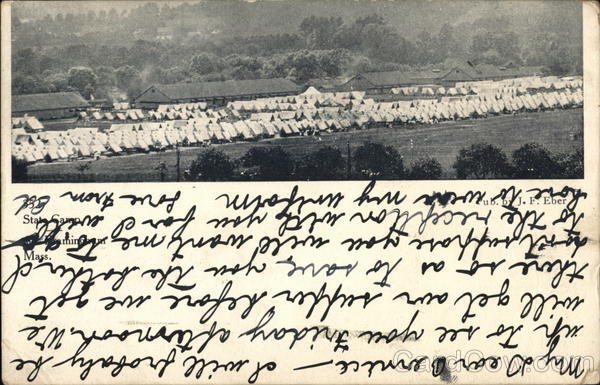 Pub. by J. F. Eber
State Camp,
Framingham
Mass.
My dear Bernice; — I will probably be
up to see you Friday afternoon. We
will get our supper before we get
there so as to save you the bother. I
don't suppose you will want me
to the reception with you for I will
have to wear my uniform
love from
Ed
CardCow.com